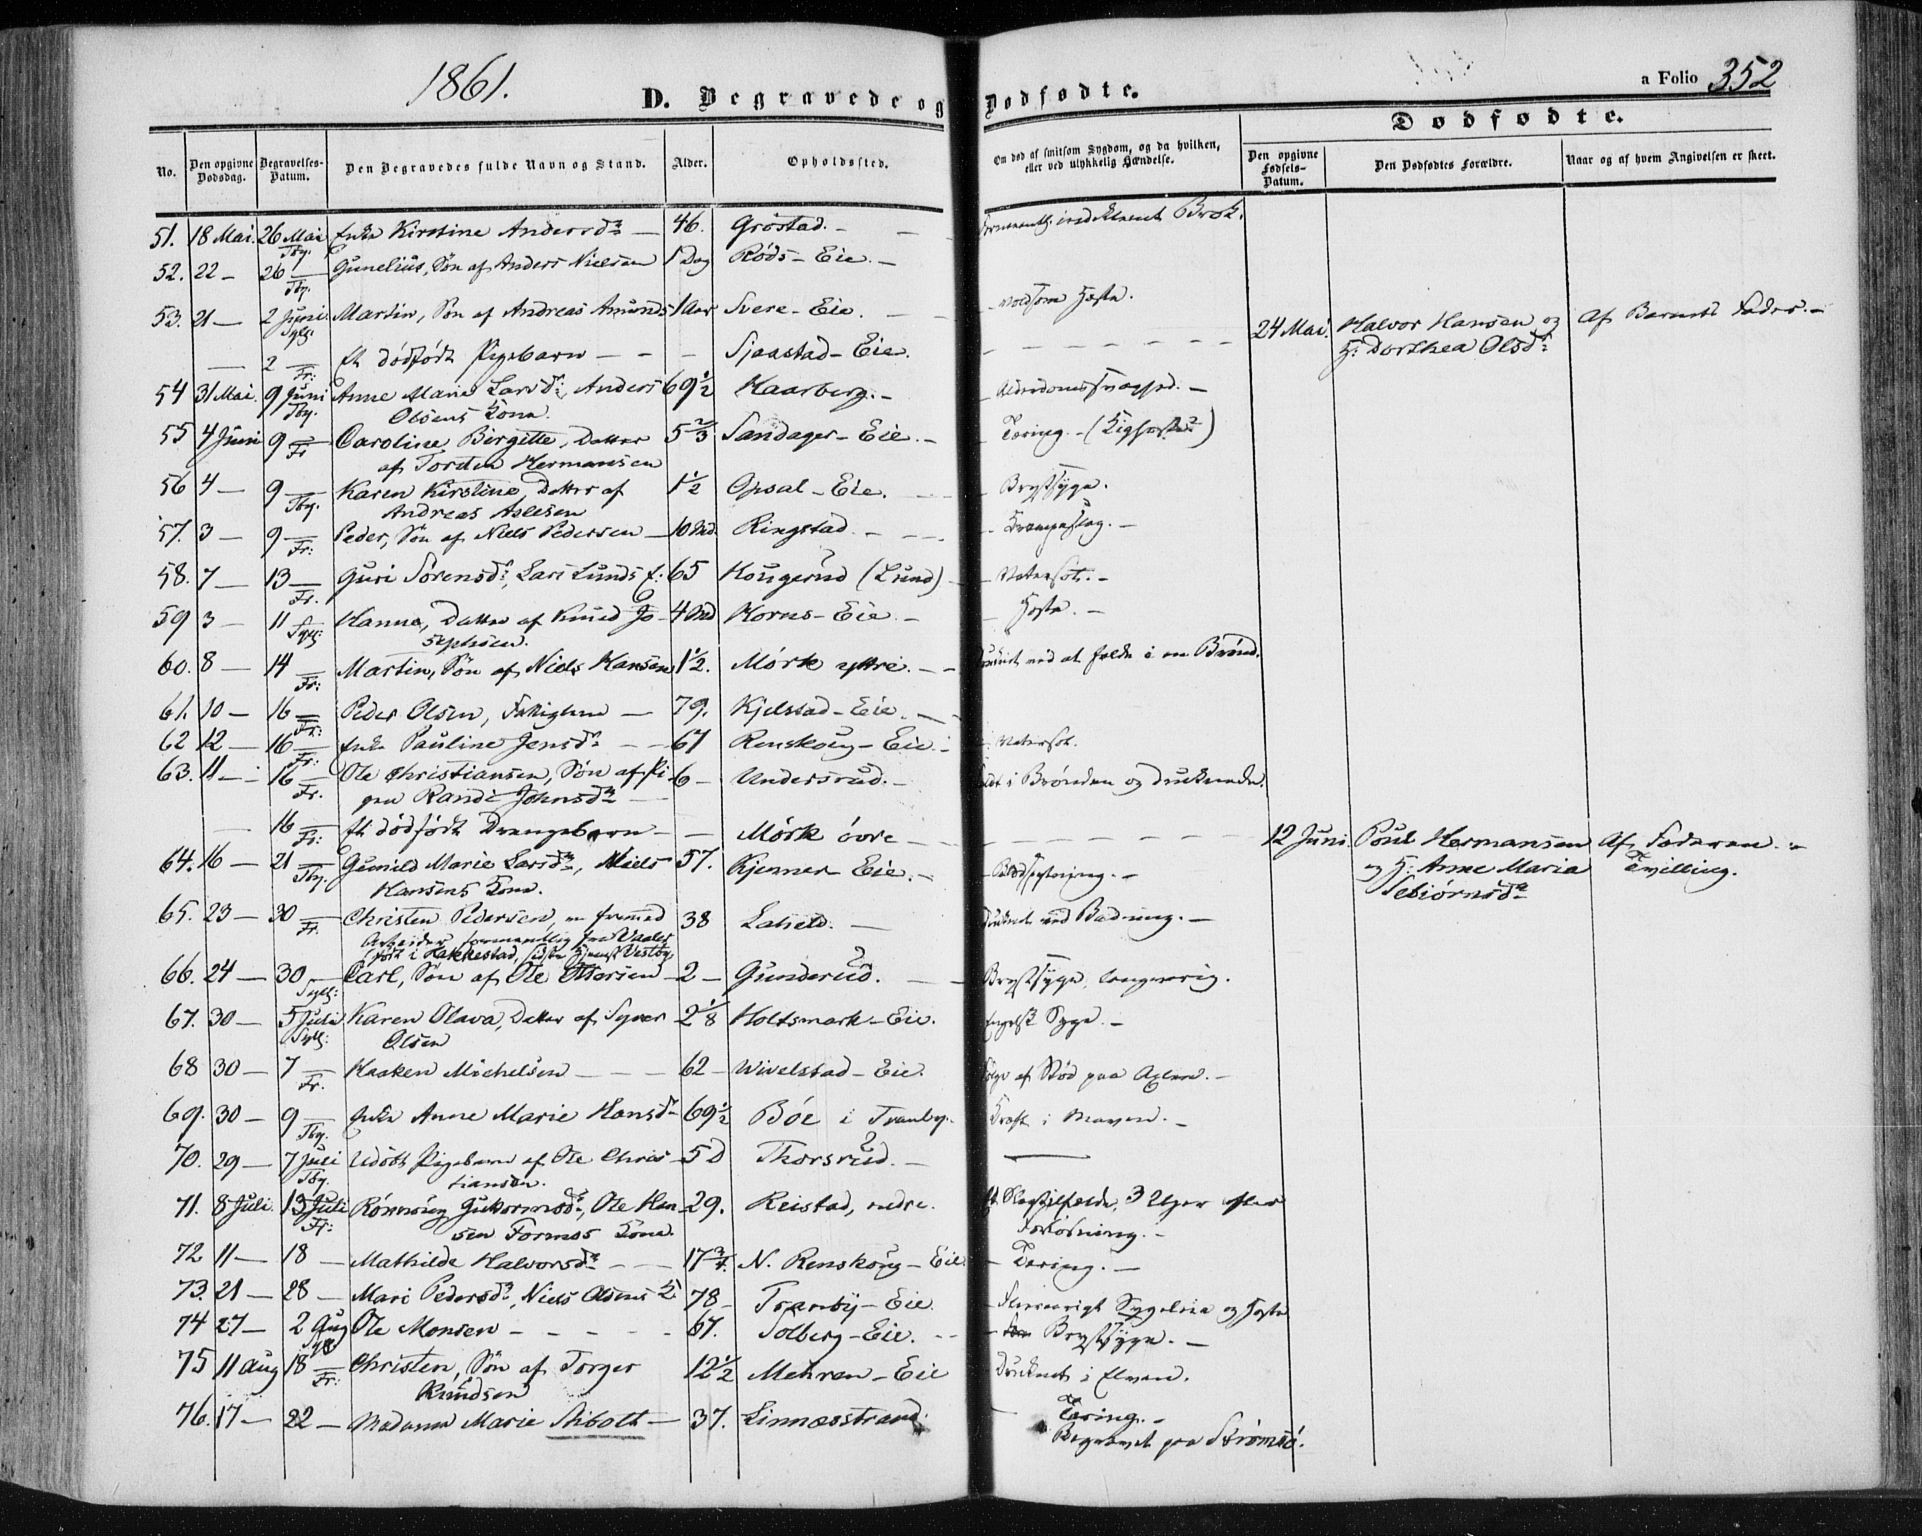 1861.
D. Begravede og Dødfødte.
a Folio 352
Dødfødte.
No.
Den opgivne Dødsdag.
Begravelses-Datum.
Den Begravedes fulde Navn og Stand.
Alder.
Opholdssted.
Om død af smitsom Sygdom, og da hvilken, eller ved ulykkelig Hændelse.
Den opgivne Fødsels-Datum.
Den Dødfødtes Forældre.
Naar og af hvem Angivelsen er skeet.
51. 18 Mai. 26 Mai Tby. Enke Kirstine Andersd. — 46. Gröstad. - Brok.
52. 22 — 26 — Tby. Gunelius, Søn af Anders Nielsen 1 Dag Röds-Eie. —
53. 21 — 2 Juni Syll: Martin, Søn af Andreas Amunds 1 Aar Svere-Eie. — voldsom Hoste.
— 2 — Fr: Et dødfødt Pigebarn — — — Sjaastad-Eie. 24 Mai. Halvor Hansen og Af Barnets Fader. —
H: Dorthea Olsd:
54 31 Mai. 9 Juni Tby. Anne Marie Larsd:, Anders 69 1/2 Haarberg. — Alderdomssvaghed. —
Olsens Kone.
55 4 Juni 9 — Fr Caroline Birgitte, Datter 5 2/3 Sandager-Eie. — Tæring. - (Kighoste?)
af Torsten Hermansen
56 4 — 9 — Tby. Karen Kirstine, Datter af 1 1/2 Opsal-Eie. — Brystsyge.
Andreas Aslesen
57. 3 — 9 — Fr: Peder, Søn af Niels Pedersen — 10 Md. Ringstad. — Krampeslag. —
58. 7 — 13 — Fr. Guri Sörensd:, Lars Lunds E: 65 Hougerud (Lund) — Vatersot. —
59 3 — 11 — Syll: Hanna, Datter af Knud Jo- 4 Md Horns-Eie. — Hoste. —
sephsen.
60. 8 — 14 — Fr: Martin, Søn af Niels Hansen 1 1/2. Mörk ytre. — — Druknet ved at falde i en Brönd.
61. 10 — 16 — Fr: Peder Olsen, Fattiglem — 79. Kjelstad-Eie. —
62 12 — 16 — Fr: Enke Pauline Jensd: — — 67 Renskoug-Eie. Vatersot.
63. 11 — 16 — Fr. Ole Christiansen, Søn af Pi- 6 — Undersrud. — Faldt i Brönden og druknede.
gen Randi Johnsd: —
— 16 — Fr: Et dødfødt Drengebarn — — Mörk övre — 12 Juni. Poul Hermansen Af Faderen. —
og H: Anne Maria Tvilling.
Sebiörnsd:
64. 16 — 21 — Tby. Gunild Marie Larsd:, Niels 57. Kjenner-Eie. — Blodstyrtning. —
Hansens Kone.
65. 23 — 30 — Fr. Christen Pedersen, en fremmed 38 Lahell. — Druknet ved Badning. —
Arbeider formentlig fra Vaaler
født i Hakkestad, sidste Hjemst Vestby.
66. 24 — 30 — Syll: Carl, Søn af Ole Ottersen — 2 — Gunderud. — Brystsyge, langvarig.
67. 30 — 5 Juli Syll: Karen Olava, Datter af Syver 2 1/8 Holtsmark-Eie. Engelsk Syge. —
Olsen
68 30 — 7 — Fr. Haaken Michelsen — — — 62 — Wivelstad-Eie. Følge af Stød paa Axlen. —
69. 30 — 9 — Tby. Enke Anne Marie Hansd: 69 1/2 Böe i Tranby. — Kræft i Maven. —
70. 29 — 7 Juli Tby. Udöbt Pigebarn af Ole Chris- 5 D Thorsrud. —
tiansen.
71. 8 Juli. 13 Juli Fr: Rönnoug Guttormsd:, Ole Han- 29. Reistad, nedre. et Slagtilfælde, 3 Uger efter
sen Formos Kone. Forløsning. —
72 11 — 18 — Mathilde Halvorsd: — — 17 3/4. N. Renskoug-Eie. — Tæring. —
73. 21 — 28 — Mari Pedersd:, Niels Olsens E: 78 — Tranby-Eie. — Fleeraarigt Sygeleie og Hoste
74 27 — 2 Aug Syll Ole Monsen — — — — 67. Solberg-Eie. — Brystsyge. —
75 11 Aug 18 — Fr: Christen, Søn af Torger 12 1/2 Mehren-Eie Druknet i Elven.
Knudsen
76. 17 — 22 — Madame Marie Stibolt — 37. Linnæsstrand. — Tæring. —
Begravet paa Strömsö.